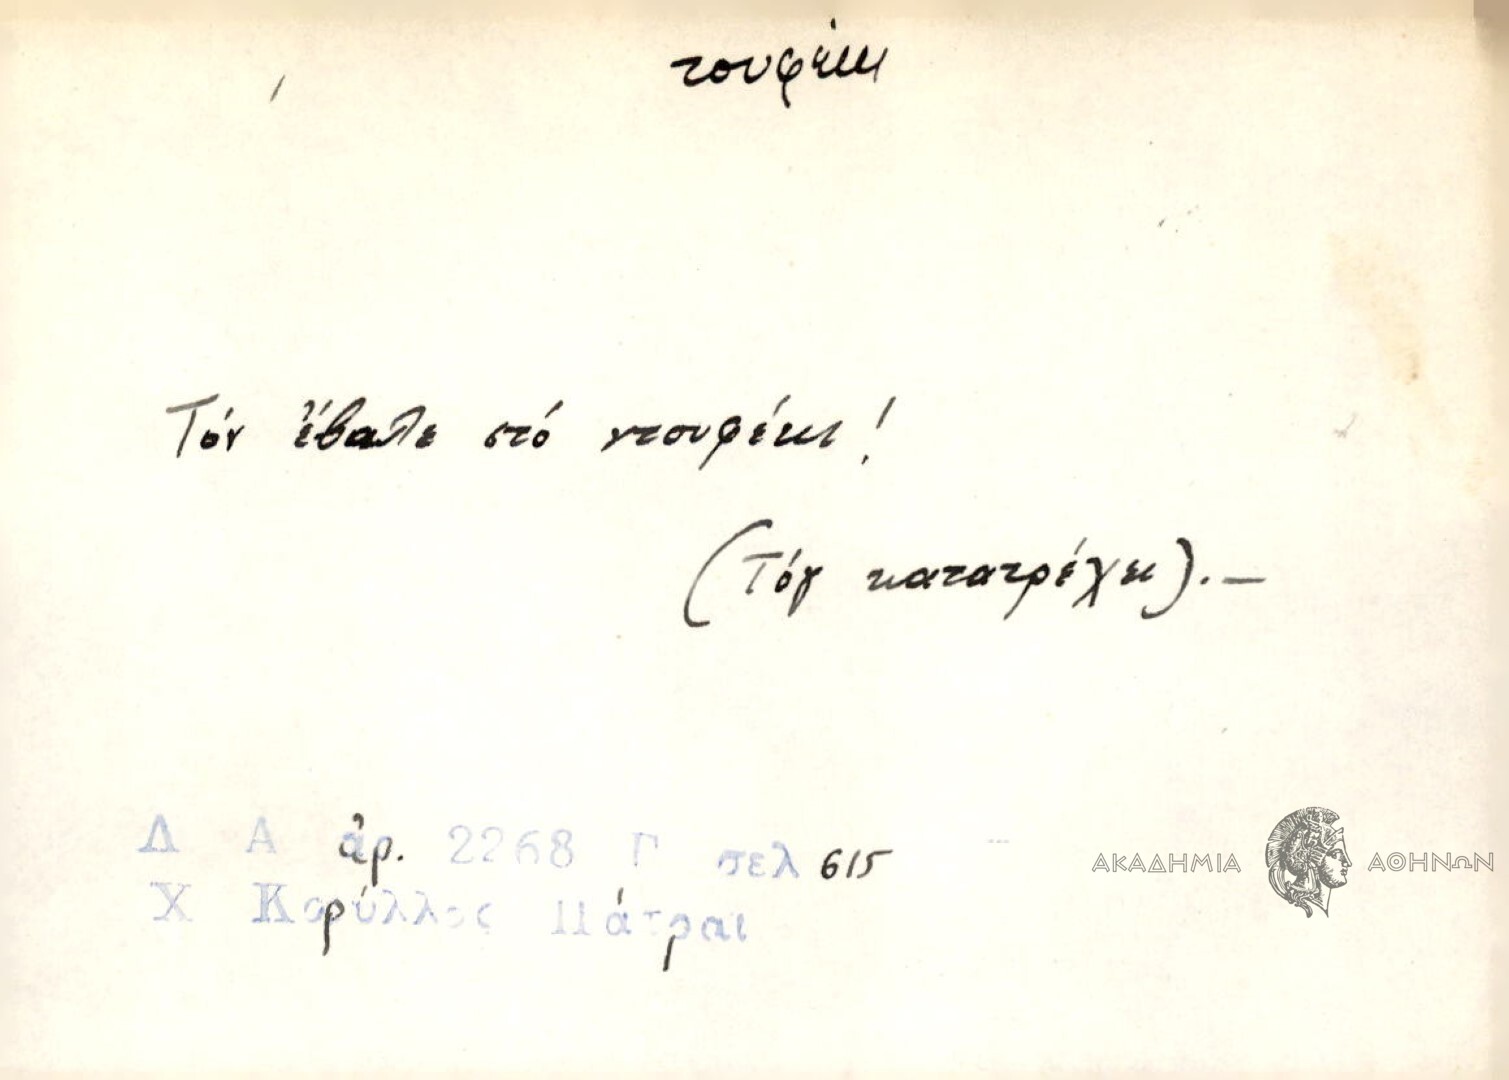 τουφέκι
Τόν ἔβαλε στό ντουφέκι!
(Τόν κατατρέχει).—
Δ Α ἀρ. 2268 Γ σελ 615
Χ Κορύλλος Πάτραι
ΑΚΑΔΗΜΙΑ ΑΘΗΝΩΝ